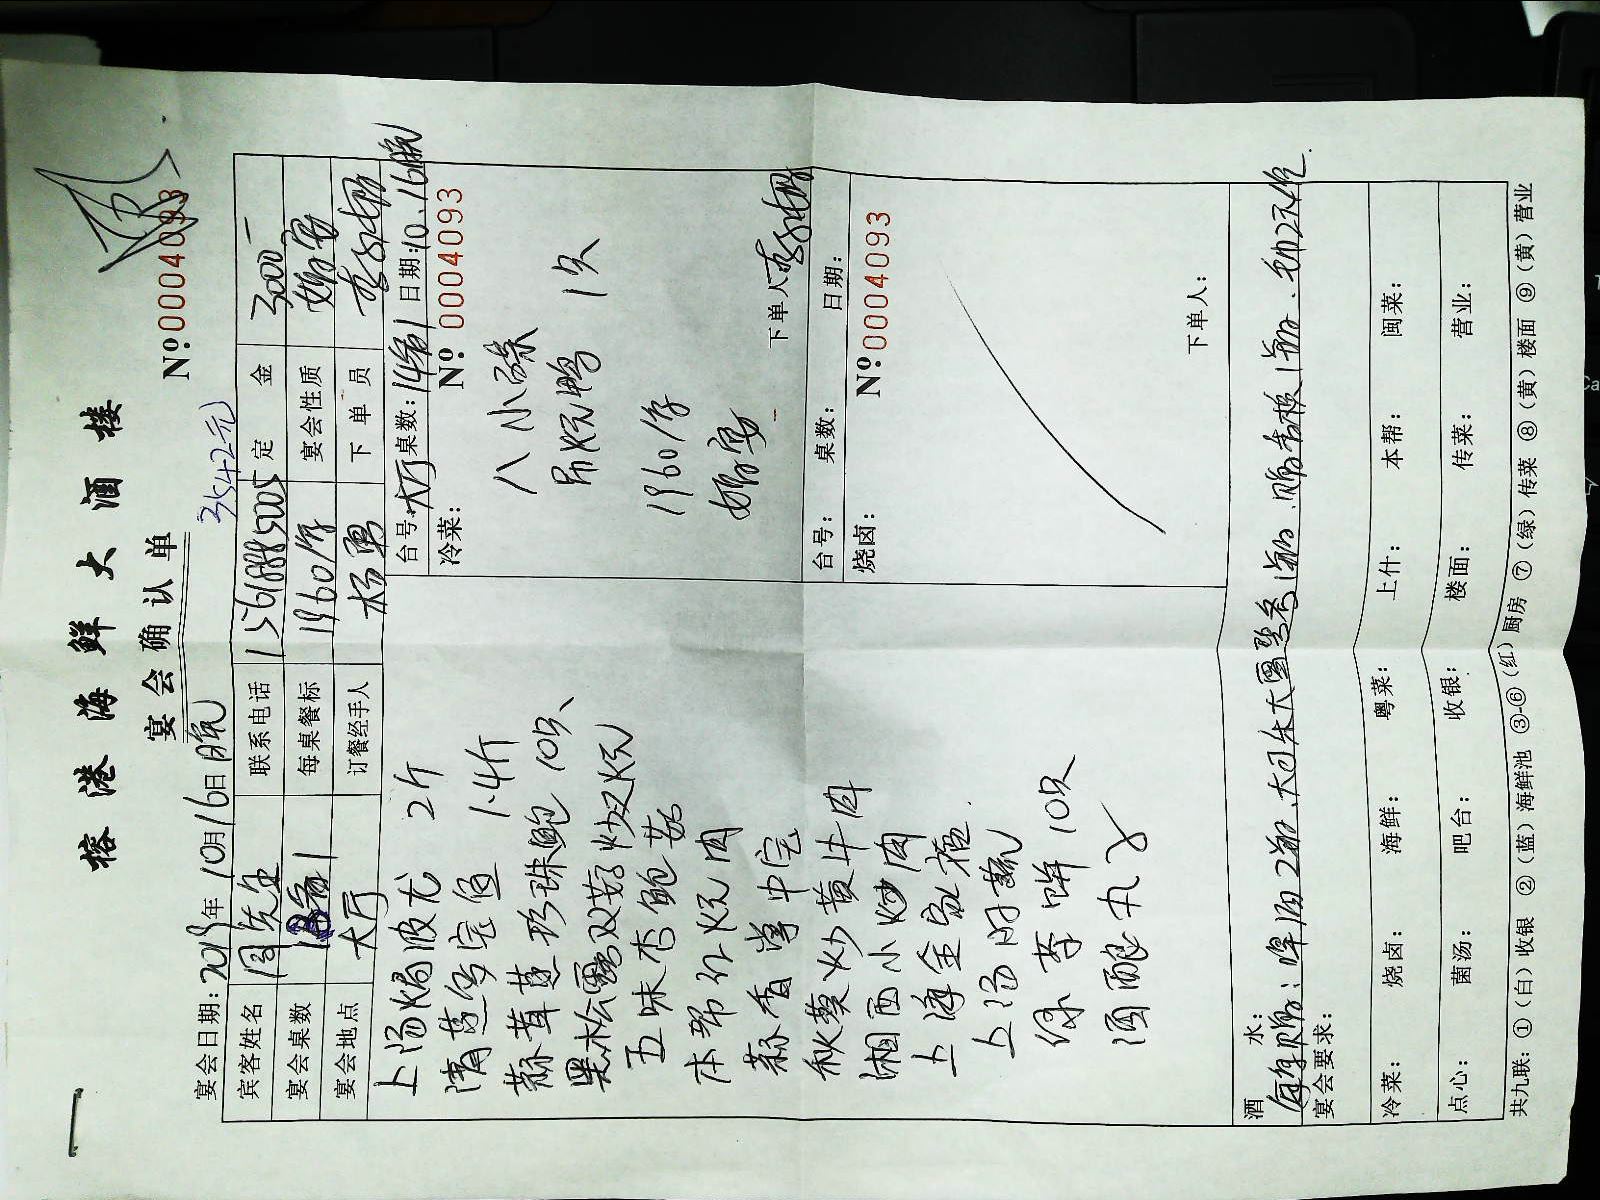 榕港海鲜大酒楼
宴会确认单
№0004093
宴会日期: 年10月16日晚
3542元
宾客姓名 周先生 联系电话 15618885005 定金 3000-
宴会桌数 每桌餐标 1960/席 宴会性质 婚宴
宴会地点 大厅 订餐经手人 杨勇 下单员
上汤焗波龙 2斤
清蒸多宝鱼 1.4斤
蒜茸蒸珍珠鲍 10只
黑松露双菇炒
五味杏鲍菇
本帮红烧肉
蒜香掌中宝
秋葵炒黄牛肉
湘西小炒肉
上海金
上汤时蔬
10只
酒酿丸子
台号:大厅 桌数: 日期:10.16晚
冷菜:
№0004093
八小碟
烧鸭 1只
1960/席
婚宴
下单人
台号: 桌数: 日期:
烧卤:
№0004093
下单人:
酒水:
每席 :啤酒2瓶、大可乐大
宴会要求:
冷菜: 烧卤: 海鲜: 粤菜: 上什: 本帮: 闽菜:
点心: 菌汤: 吧台: 收银: 楼面: 传菜: 营业:
共九联:①(白)收银 ②(蓝)海鲜池 ③-⑥(红)厨房 ⑦(绿)传菜 ⑧(黄)楼面 ⑨(黄)营业